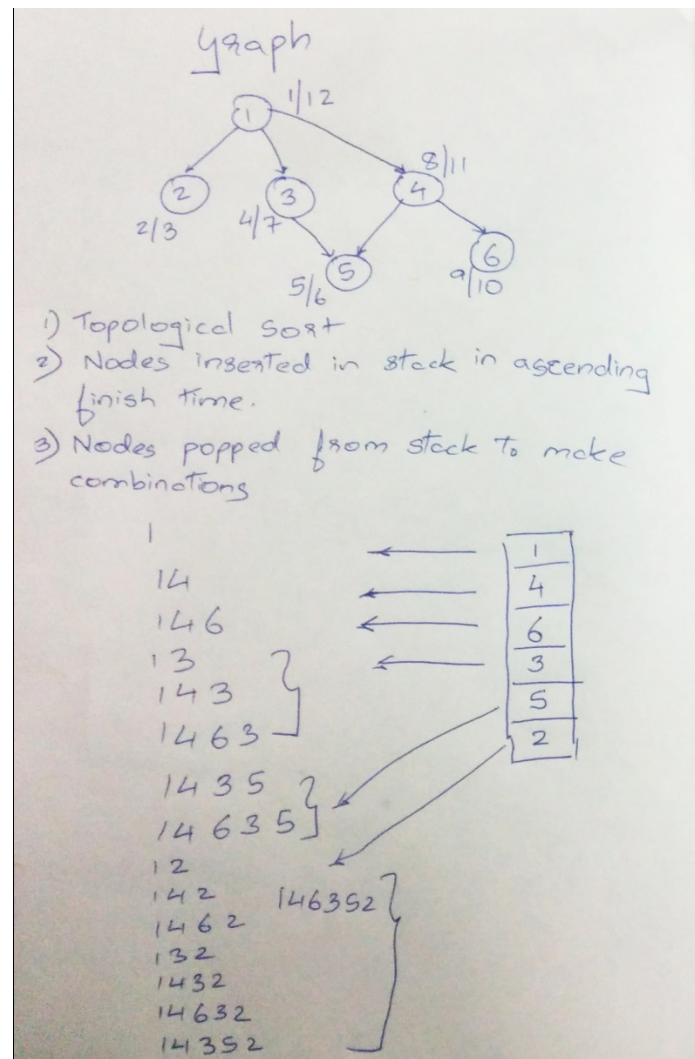 Graph
1/12
1
8/11
2
3
4
2/3
4/7
6
5
9/10
5/6
1) Topological sort
2) Nodes inserted in stack in ascending
finish time.
3) Nodes popped from stack to make
combinations
1
1
14
4
146
6
13
3
143
5
1463
2
1435
14635
12
142 146352
1462
132
1432
14632
14352